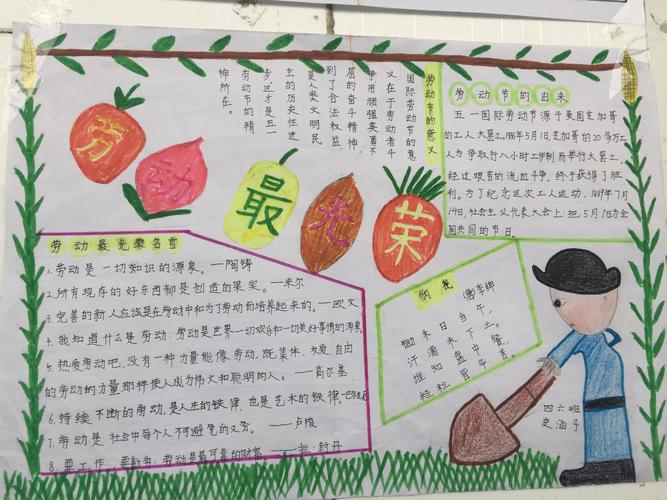 劳动最光荣
劳动节的意义
国际劳动节的意
义在于劳动者斗
争用顽强英勇不
屈的奋斗精神，
到了合法权益，
是人类文明民
主的历史性进
步，这才是五一
劳动节的精
神所在。
劳动节的由来
五一国际劳动节源于美国芝加哥
的工人大罢工。1886年5月1日芝加哥的20多万工
人为争取行八小时工作制而举行大罢工。
经过艰苦的流血斗争，终于获得了胜
利。为了纪念这次工人运动，1889年7月
14日，社会主义代表大会上：把5月1日为全
国共同的节日
劳动最光荣名言
1.劳动是一切知识的源泉。——陶铸
2.所有现存的好东西都是创造的果实。——米尔
3.完善的新人应该是在劳动中和为了劳动而培养起来的。——欧文
4.我知道什么是劳动：劳动是世界一切欢乐和一切美好事情的源泉
5.热爱劳动吧。没有一种力量能像劳动，既集体、友爱、自由
的劳动的力量那样使人成为伟大和聪明的人。——高尔基
6.持续不断的劳动，是人生的铁律，也是艺术的铁律。
7.劳动是社会中每个人不可避免的义务。——卢梭
8.要工作，要勤劳：劳动是最可靠的财富。
悯农 唐李绅
锄禾日当午，
汗滴禾下土。
谁知盘中餐，
粒粒皆辛苦。
四六班
史涵予